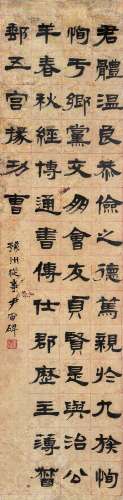 君體溫良恭儉之德篤親於九族恂
恂于鄉黨交朋會友貞賢是與治公
羊春秋經博通書傳仕郡歷主簿督
郵五官掾功曹
豫州從事尹宙碑